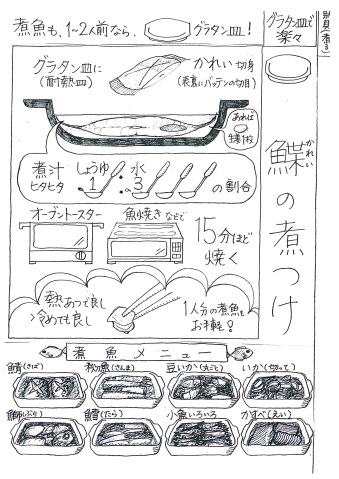 煮魚も、1〜2人前なら、グラタン皿!
グラタン皿で
楽々
鰈の煮つけ
かれい
グラタン皿に
(耐熱皿)
かれい 切身
(表裏にバッテンの切目)
あれば
生姜1枚
煮汁
ヒタヒタ
しょうゆ
1
水
3
の割合
オーブントースター
魚焼きなどで
15分ほど
焼く
熱あつで良し
冷めても良し
1人分の煮魚も
お手軽!
煮魚メニュー
鯖(さば)
秋刀魚(さんま)
豆いか(丸ごと)
いか(切って)
鰤(ぶり)
鱈(たら)
小魚いろいろ
かすべ(えい)